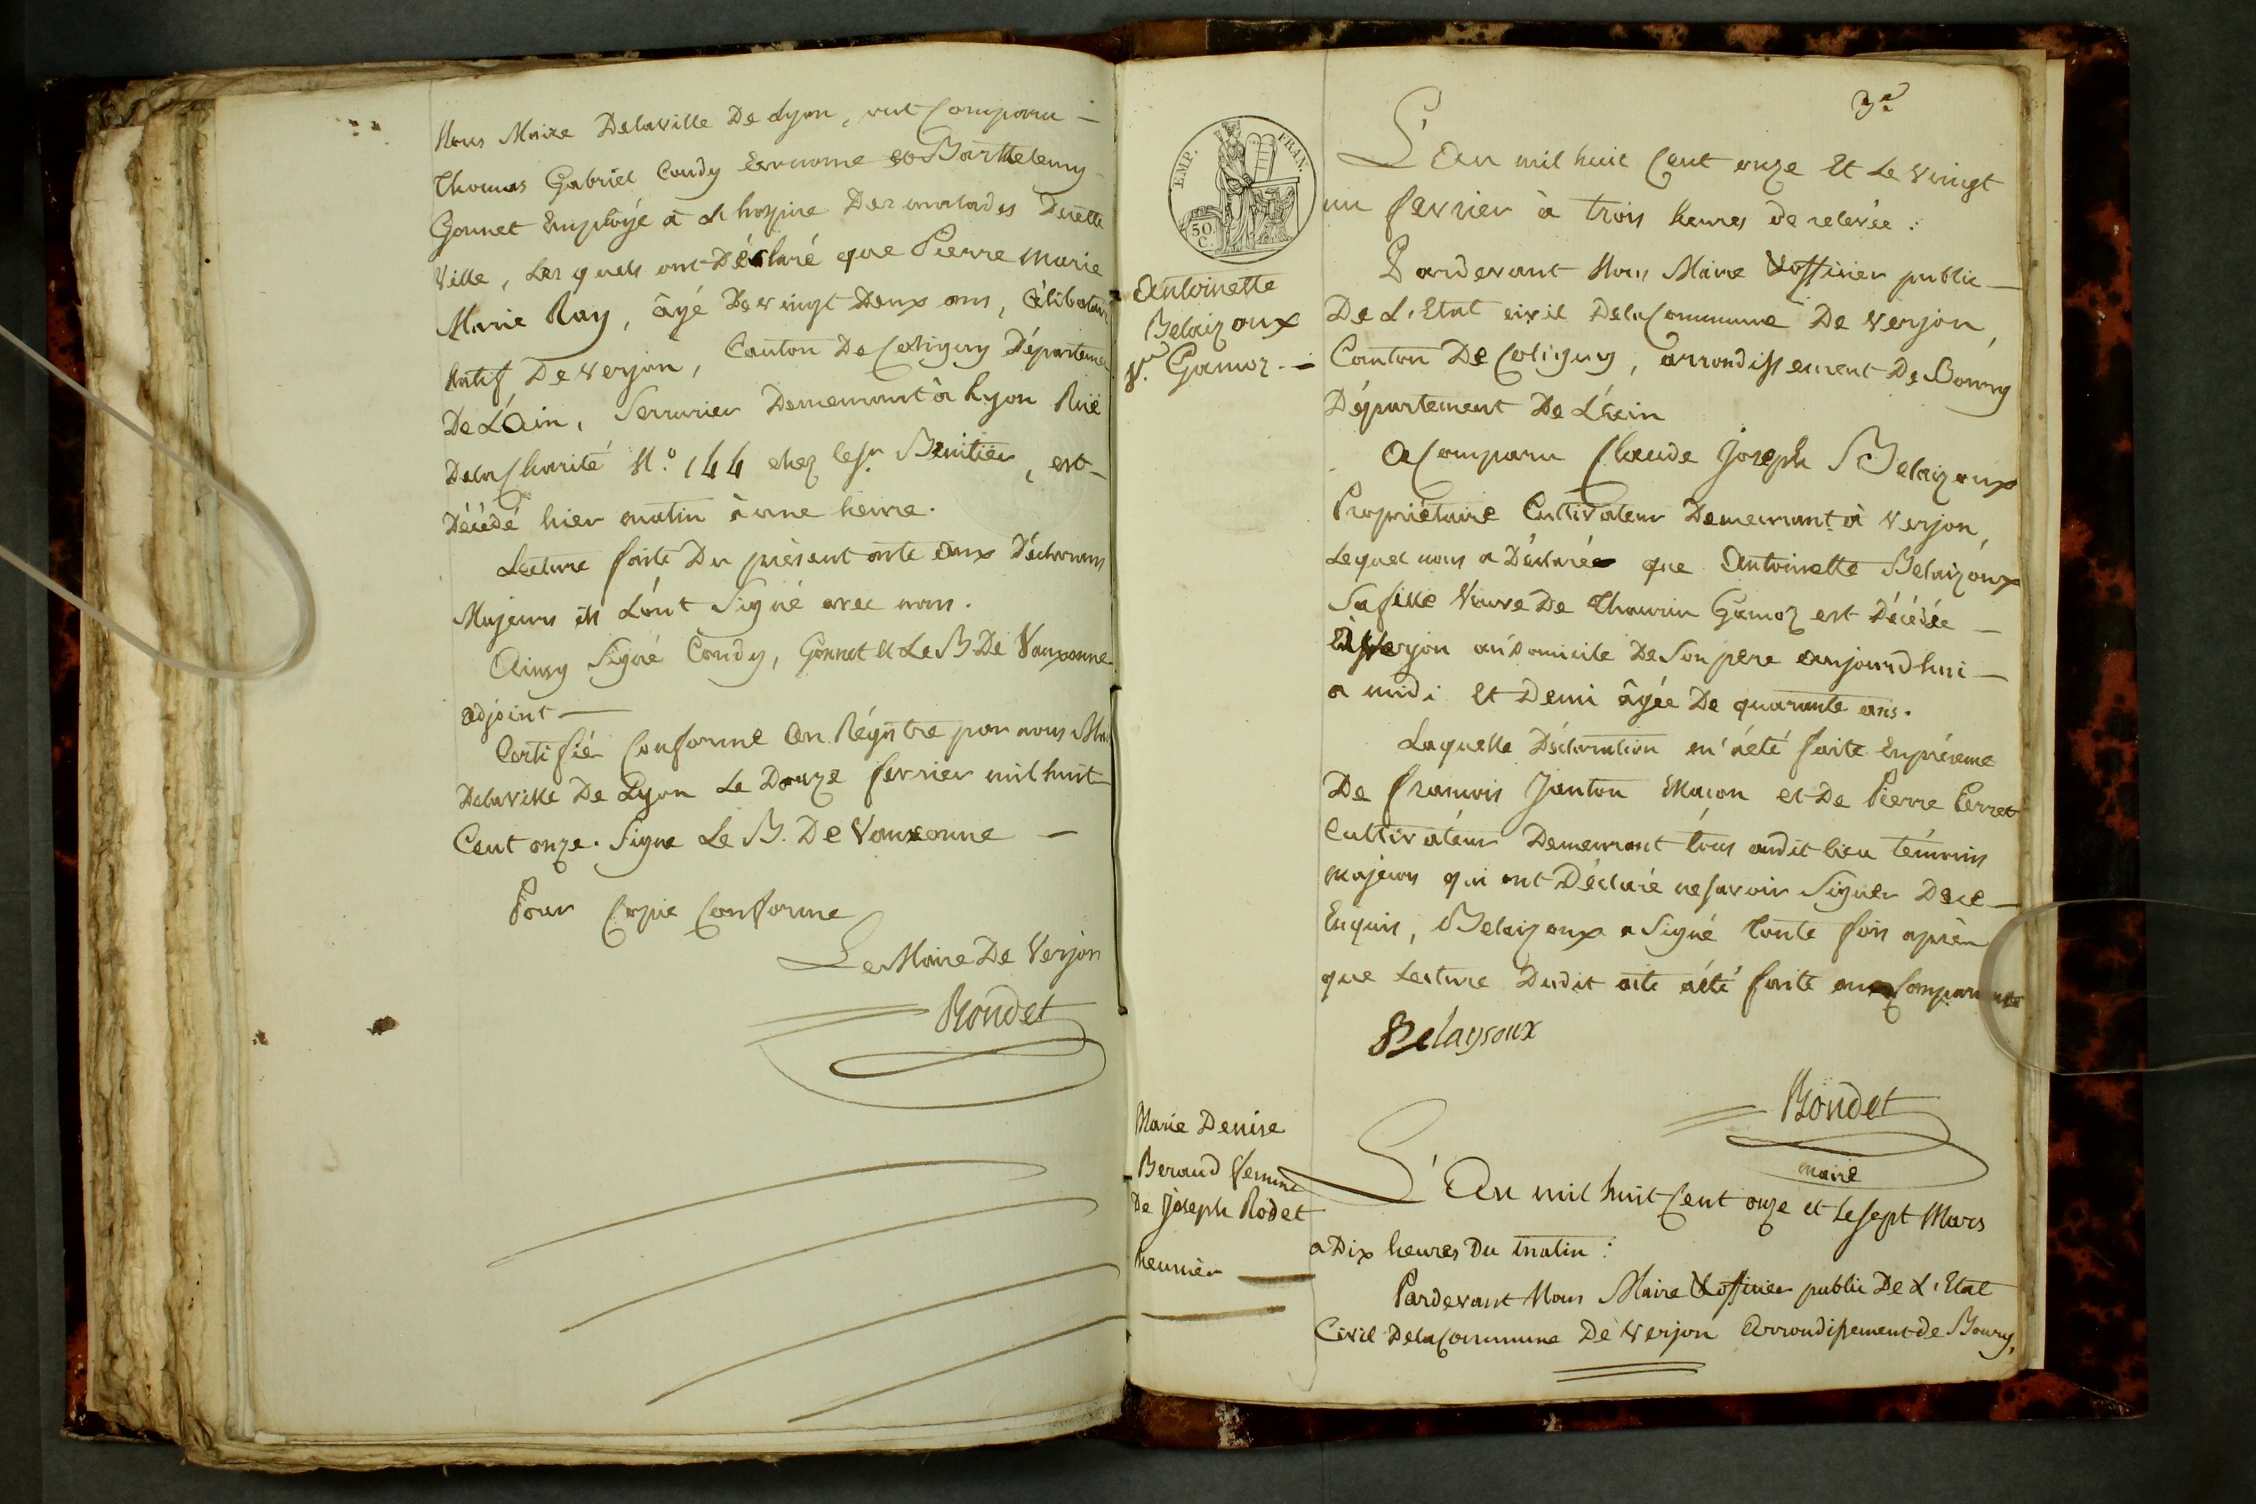 Nous Maire Delaville De Lyon, ont Comparu —
Thomas Gabriel Coudy Econome et Barthelemy
Gonnet Employé à L'hospice Des malades De cette
Ville, Lesquels ont Déclaré que Pierre Marie
Marie Ray, âgé De vingt Deux ans, Célibataire
Natif De Verjon, Canton De Coligny Département
De L'Ain, Serrurier Demeurant à Lyon Ruë
Dela Charité N.º 144 chez le Sr Benitier, est
Décédé hier matin à une heure.
Lecture faite Du présent acte aux Déclarans
Majeurs ils L'ont Signé avec nous.
Ainsy Signé Coudy, Gonnet et Le B De Vauxonne
adjoint —
Certifié Conforme au Régistre par nous Maire
Delaville De Lyon Le Douze fevrier mil huit
Cent onze. Signé Le B. De Vauxonne —
Pour Copie Conforme
Le Maire De Verjon
Rondet
3e
EMP. FRAN.
50 C.
Antoinette
Belaizoux
Ve Gamoz. —
L'An mil huit Cent onze Et Le vingt
un fevrier à trois heures de relevée :
Pardevant Nous Maire & officier public —
De L'Etat civil Dela Commune De Verjon,
Canton De Coligny, arrondissement De Bourg
Département De L'Ain
A Comparu Claude Joseph Belaizoux
Propriétaire Cultivateur Demeurant à Verjon,
Lequel nous a Déclaré que Antoinette Belaizoux
Sa fille Veuve De Thaurin Gamoz est Décédée —
à Verjon au Domicile De Son pere aujourd'hui —
a midi et Demi âgée De quarante ans.
Laquelle Déclaration m'a été faite En présence
De francois Janton Macon et De Pierre Perret
Cultivateur Demeurant tous audit lieu témoins
majeurs qui ont Déclaré ne savoir Signer De ce —
Enquis, Belaizoux a Signé toute fois après
que Lecture Dudit acte a été faite aux Comparants
Belaysoux
Rondet
maire
Marie Denise
Beraud femme
De Joseph Rodet
meunier —
L'An mil huit Cent onze et Le sept Mars
a Dix heures Du matin :
Pardevant Nous Maire & officier public De L'Etat
Civil Dela Commune De Verjon Arrondissement de Bourg,